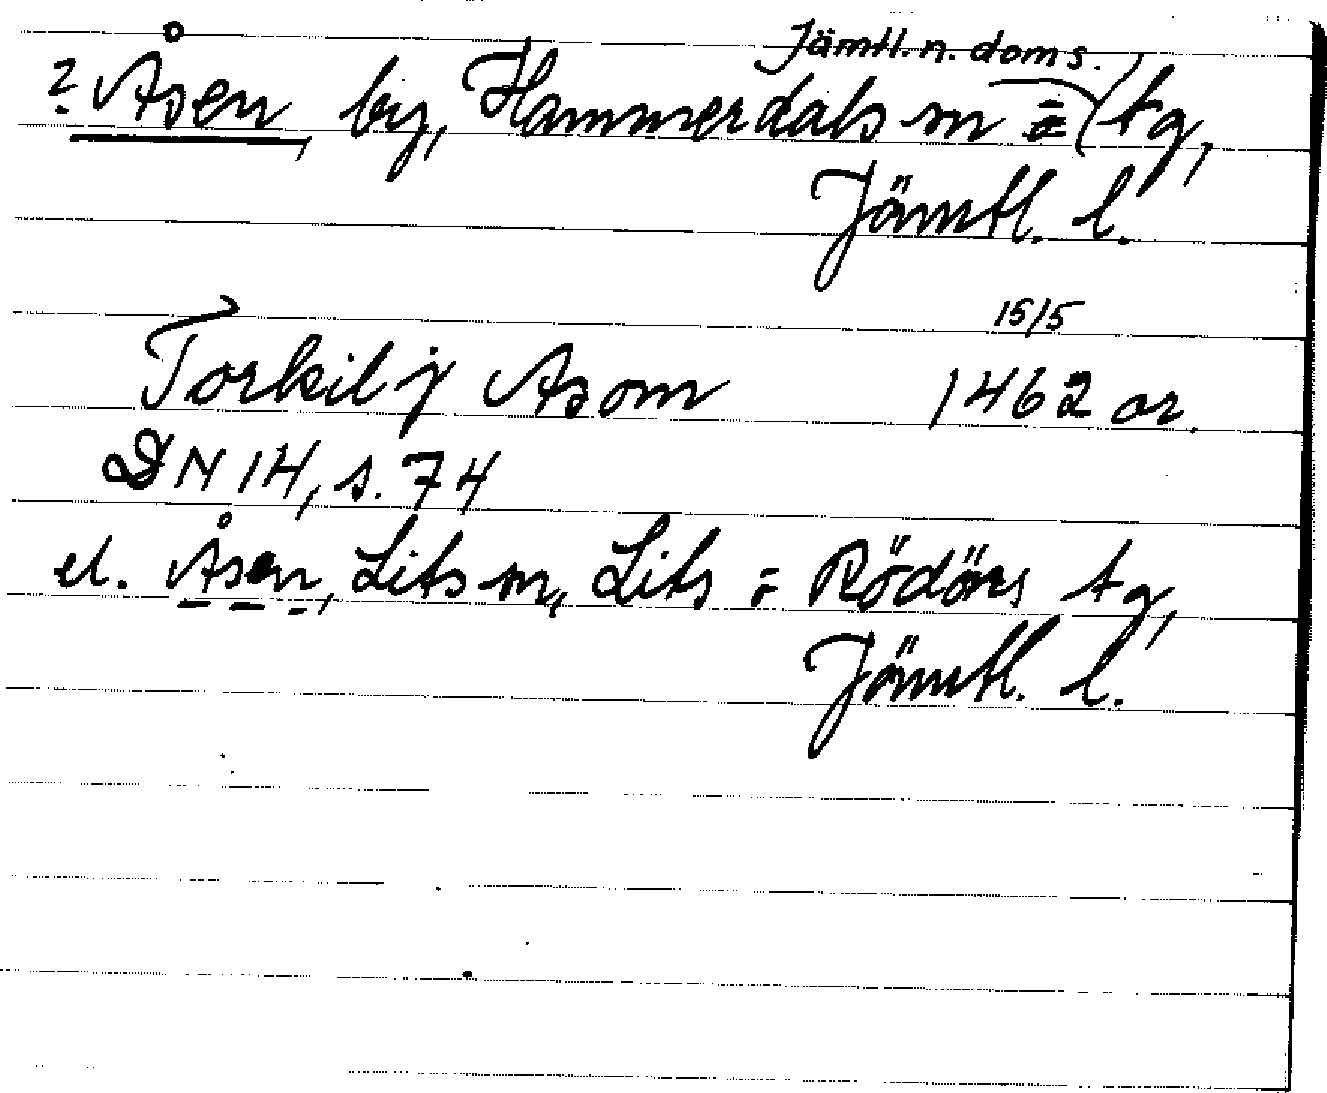 Jämtl. n. doms.
? Åsen, by, Hammerdals sn o. tg,
Jämtl. l.
15/5
Torkil j Asom 1462 or.
DN 14, s. 74
el. Åsen, Lits sn, Lits o. Rödöns tg,
Jämtl. l.